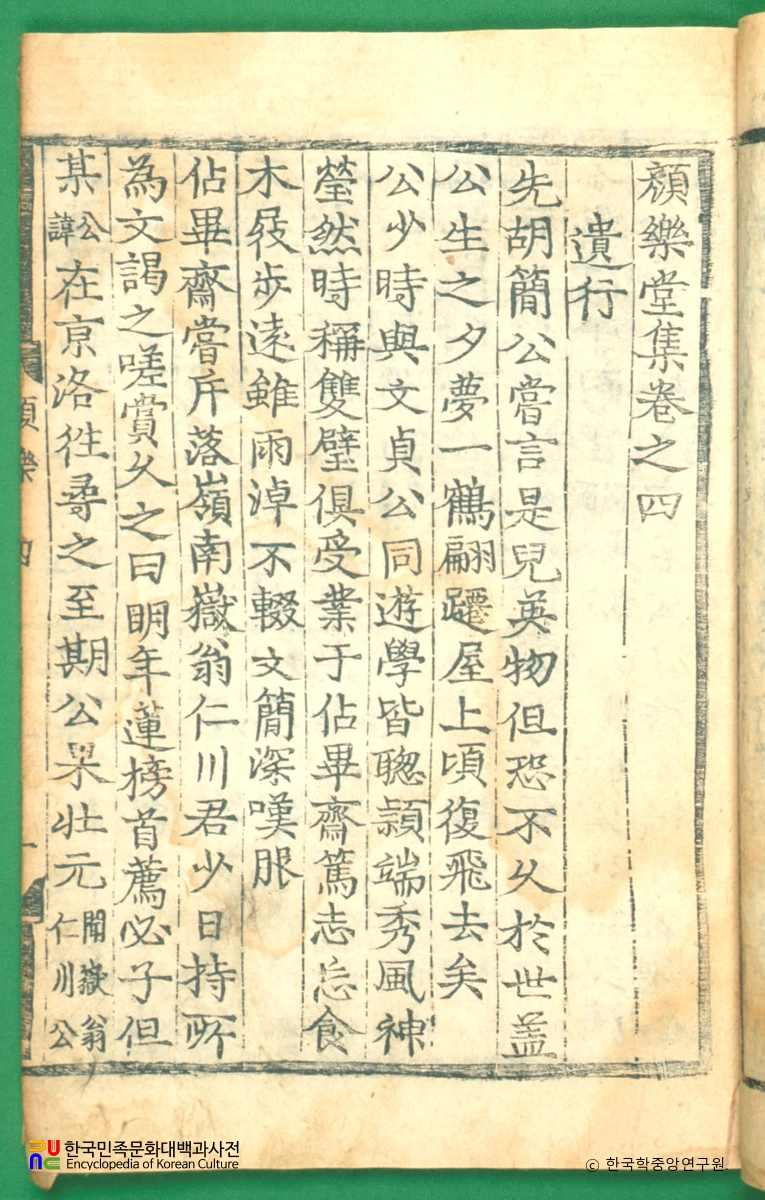 顏樂堂集卷之四
遺行
先胡簡公嘗言是兒英物但恐不久於世盖
公生之夕夢一鶴翩躚屋上頃復飛去矣
公少時與文貞公同遊學皆聰頴端秀風神
瑩然時稱雙璧俱受業于佔畢齋篤志忘食
木屐步遠雖雨淖不輟文簡深嘆服
佔畢齋嘗斥落嶺南嶽翁仁川君少日持所
為文謁之嗟賞久之曰明年蓮榜首薦必子但
某公諱在京洛徃尋之至期公果壯元聞嶽翁仁川公
顏樂 四 一
한국민족문화대백과사전
Encyclopedia of Korean Culture
© 한국학중앙연구원